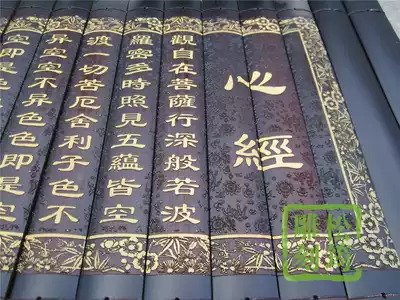 心經
觀自在菩薩行深般若波
羅密多時照見五蘊皆空
渡一切苦厄舍利子色不
昇空空不昇色色即是
空即是色